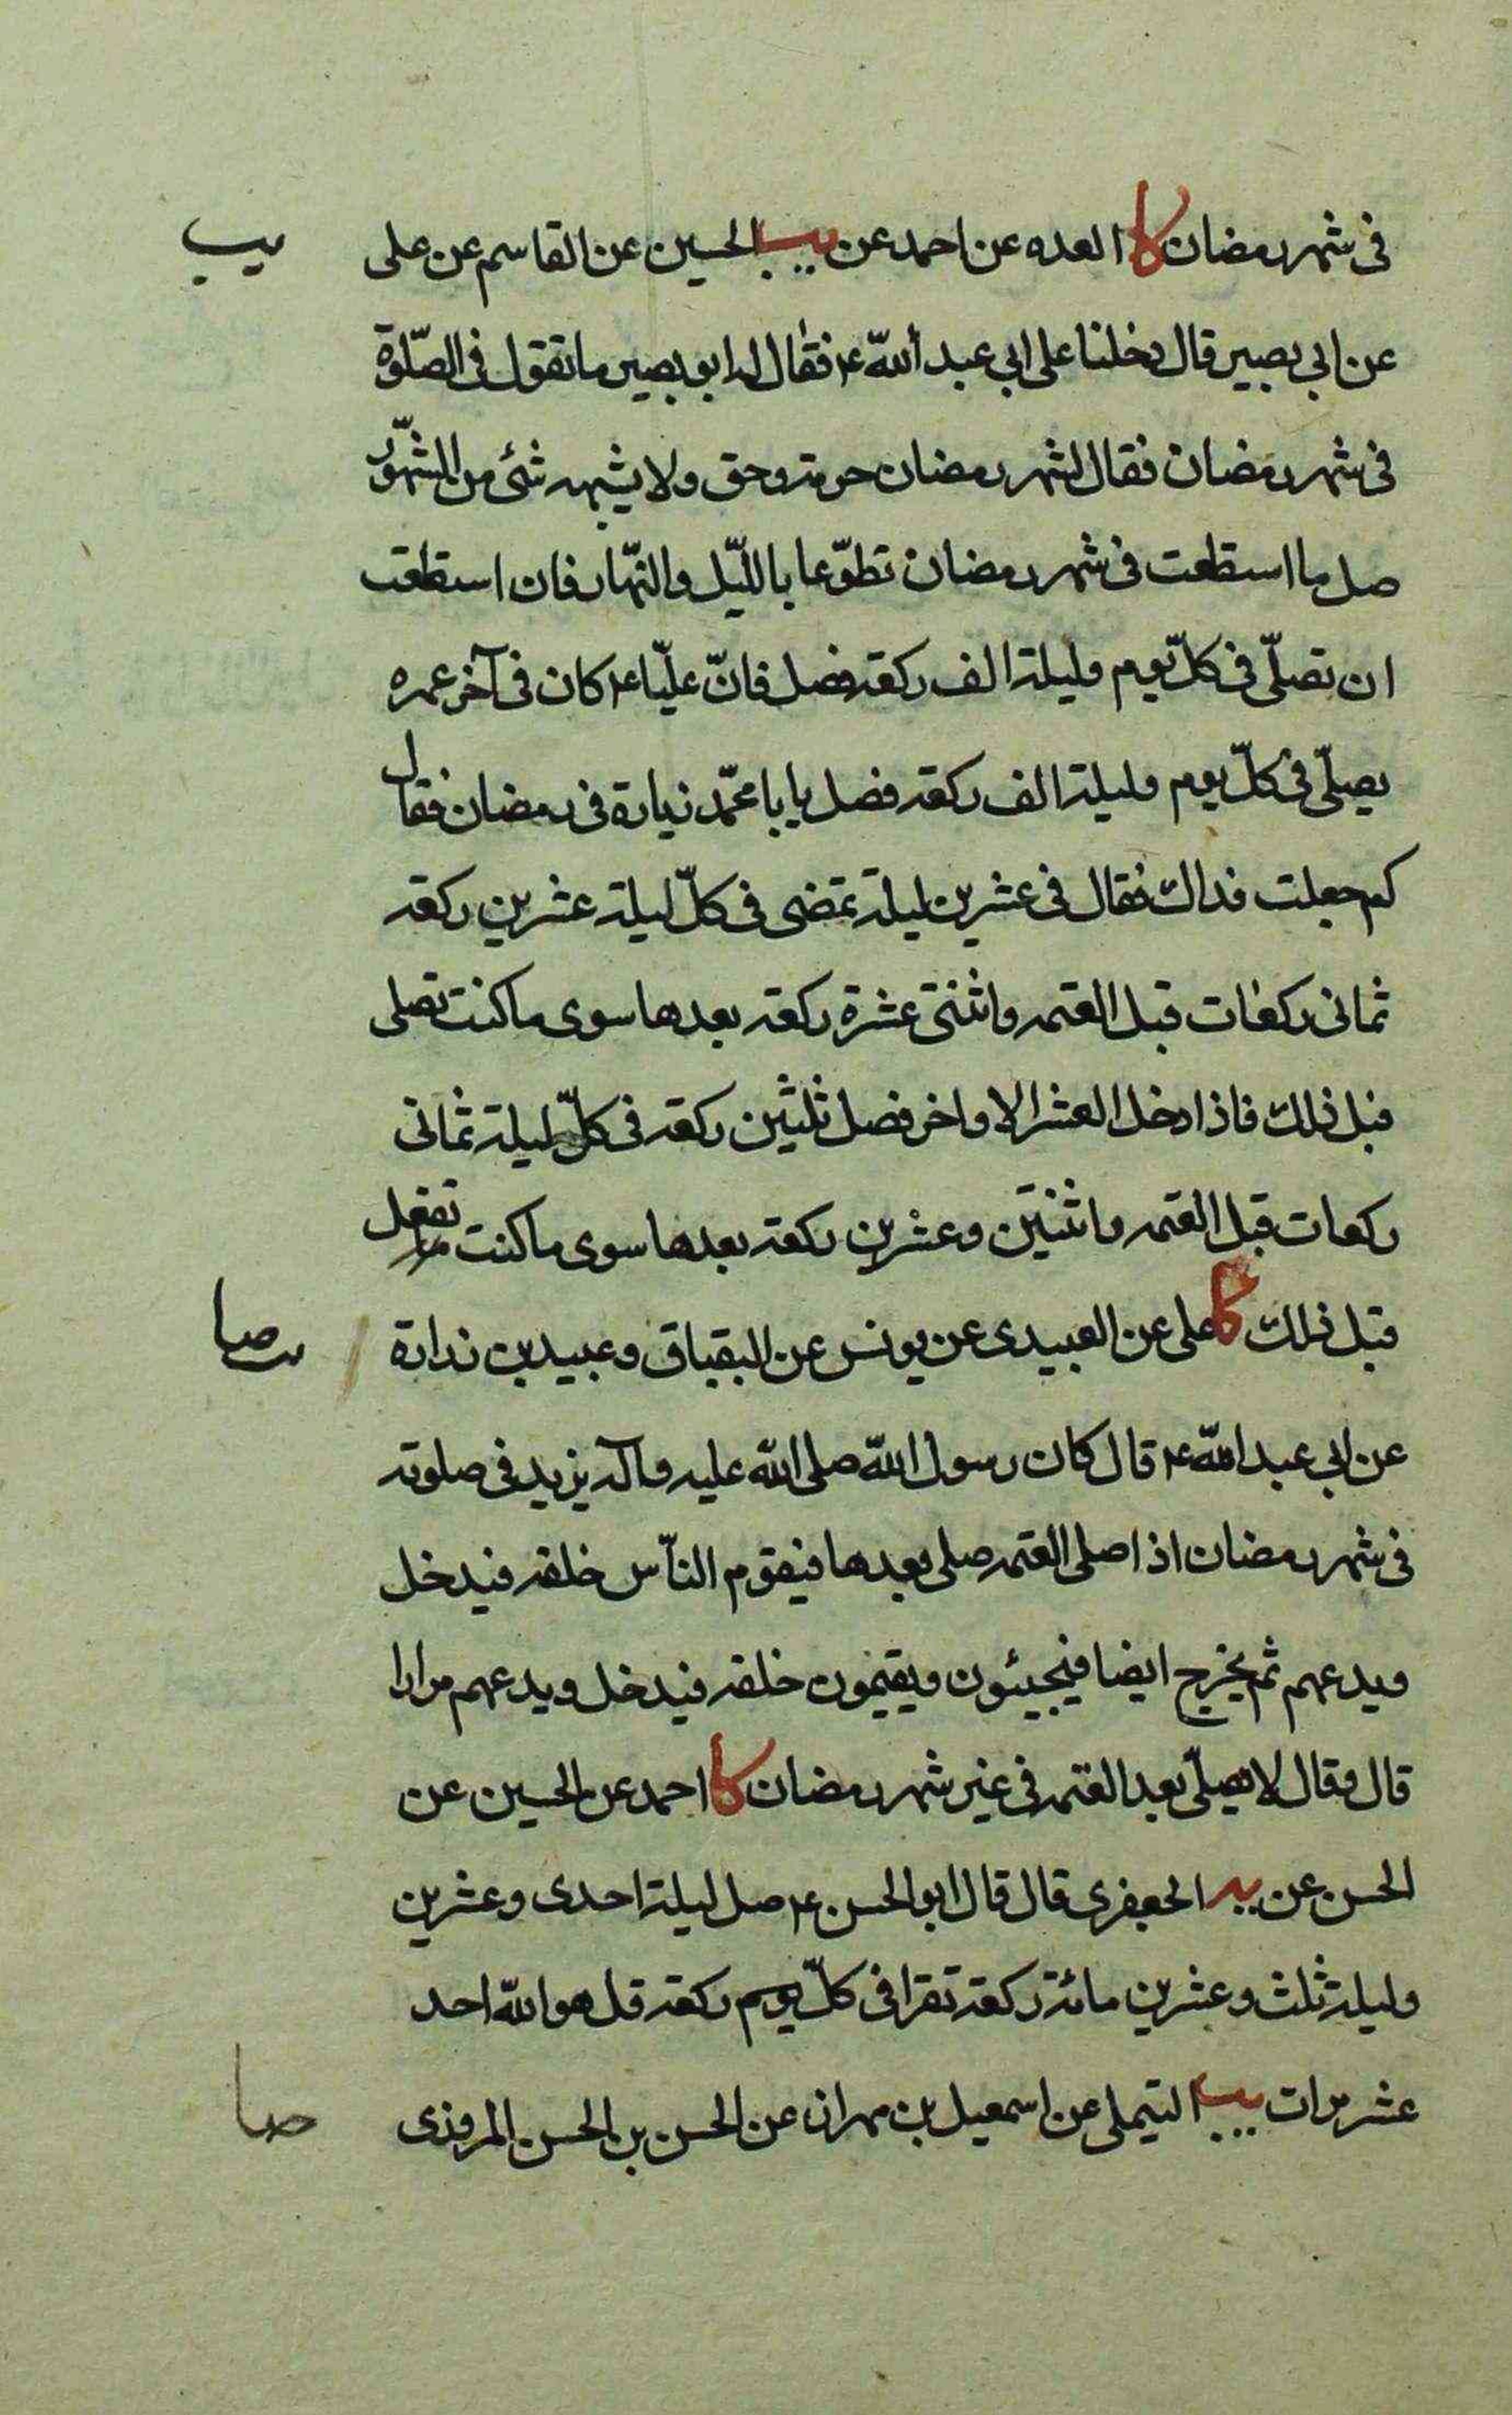 فى شهر رمضان كا العده عن احمد عن يب الحسين عن القاسم عن على
يب
عن ابي بصير قال دخلنا على ابي عبد الله ع فقال له ابو بصير ما تقول فى الصّلوة
فى شهر رمضان فقال لشهر رمضان حرمة وحق ولا يشبهه شئ من الشهور
صل ما استطعت فى شهر رمضان تطوّعا بالليّل والنهّار فان استطعت
ان تصلّى فى كلّ يوم وليلة الف ركعة فصل فانّ عليّا ع كان فى آخر عمره
يصلّى فى كلّ يوم وليلة الف ركعة فصل يا با محمّد زيادة فى رمضان فقال
كم جعلت فداك فقال فى عشرين ليلة تمضى فى كلّ ليلة عشرين ركعة
ثمانى ركعات قبل العتمه واثنتى عشرة ركعة بعدها سوى ما كنت تصلى
قبل ذلك فاذا دخل العشر الاواخر فصل ثلثين ركعة فى كلّ ليلة ثمانى
ركعات قبل العتمه واثنتين وعشرين ركعة بعدها سوى ما كنت تفعل
قبل ذلك كا على عن العبيدى عن يونس عن البقباق وعبيد بن زرارة
صا
عن ابي عبد الله ع قال كان رسول الله صلى الله عليه وآله يزيد فى صلوته
فى شهر رمضان اذا صلى العتمه صلى بعدها فيقوم النّاس خلفه فيدخل
ويدعهم ثم يخرج ايضا فيجيئون ويقيمون خلفه فيدخل ويدعهم مرارا
قال وقال لا يصلّى بعد العتمه فى غير شهر رمضان كا احمد عن الحسين عن
الحسن عن يه الجعفرى قال قال ابو الحسن ع صل ليلة احدى وعشرين
وليلة ثلث وعشرين مائة ركعة تقرا فى كلّ يوم ركعة قل هو الله احد
عشر مرات يب التيملى عن اسمعيل بن مهران عن الحسن بن الحسن المروزى
صا